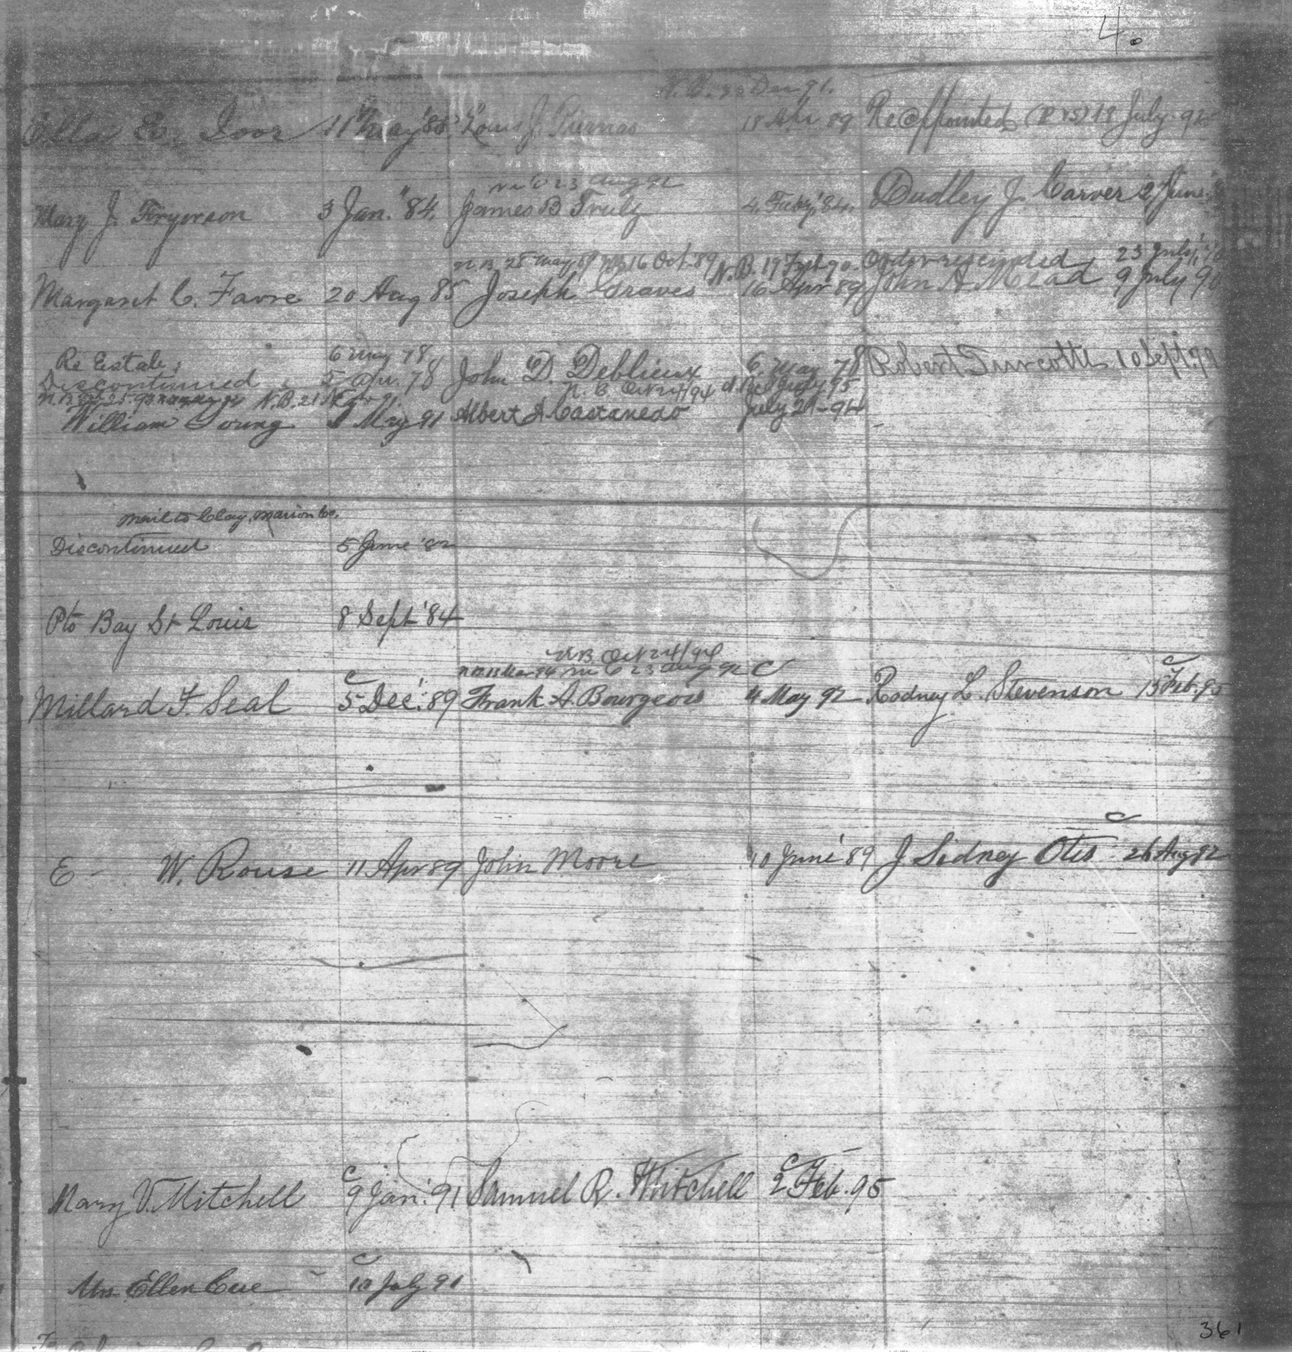 4.
N.B. 30 Dec 91.
Ella E. Ioor 11 May '88 Louis J. Purnas 18 Apr 89 Reappointed (P rs) 18 July 92
N B 23 Aug 92
Mary J. Fryerson 3 Jan. '84. James B Truly 4. Feby '84. Dudley J. Carver 2 June
N.B. 28 May 89 N.B. 16 Oct. 89 N.B. 19 Feb 90 Order rescinded 23 July
Margaret C. Favre 20 Aug 85 Joseph Graves 16 Apr 89 John A Mead 9 July 90
Re Estab; 6 May 78
Discontinued 5 Apr. 78 John D. Deblieux 6 May 78 Robert Turcotte 10 Sept.
N.B. 21 N B Oct 24/94
William Young 1 May 91 Albert A Castanedo July 21-94
Mail to Clay, Marion Co.
Discontinued 5 June '82
Pto Bay St Louis 8 Sept '84
N B Oct 24/94
N B 23 Aug 92
Millard F. Seal c 5 Dec. '89 Frank A. Bourgeois c 4 May 92 Rodney L. Stevenson c 15 Feb. 95
E - W. Rouse 11 Apr 89 John Moore 10 June '89 J Sidney Otis c 26 Aug 92
Mary V. Mitchell c 9 Jan. 91 Samuel R. Whitchell c 2 Feb. 95
Mrs Ellen Cue c 10 July 91
361